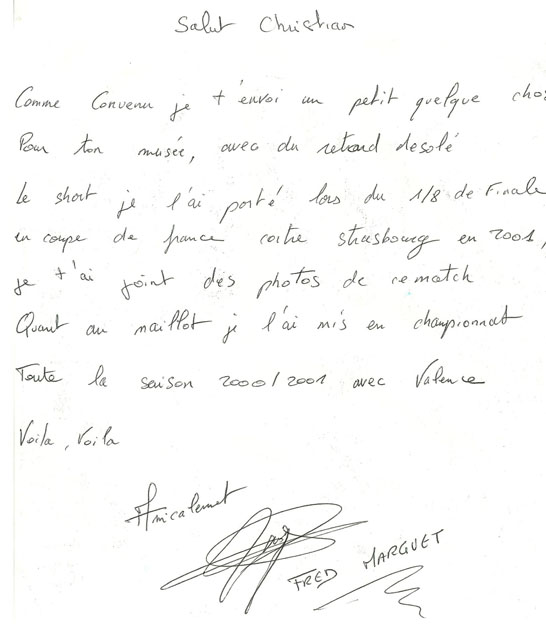 Salut Christian
Comme Convenu je t'envoi un petit quelque cho
Pour ton musée, avec du retard desolé
Le short je l'ai porté lors du 1/8 de Finale
en coupe de france contre strasbourg en 2001,
je t'ai joint des photos de ce match
Quant au maillot je l'ai mis en championnat
Toute la saison 2000/2001 avec Valence
Voila, Voila
Amicalement
FRED MARGUET